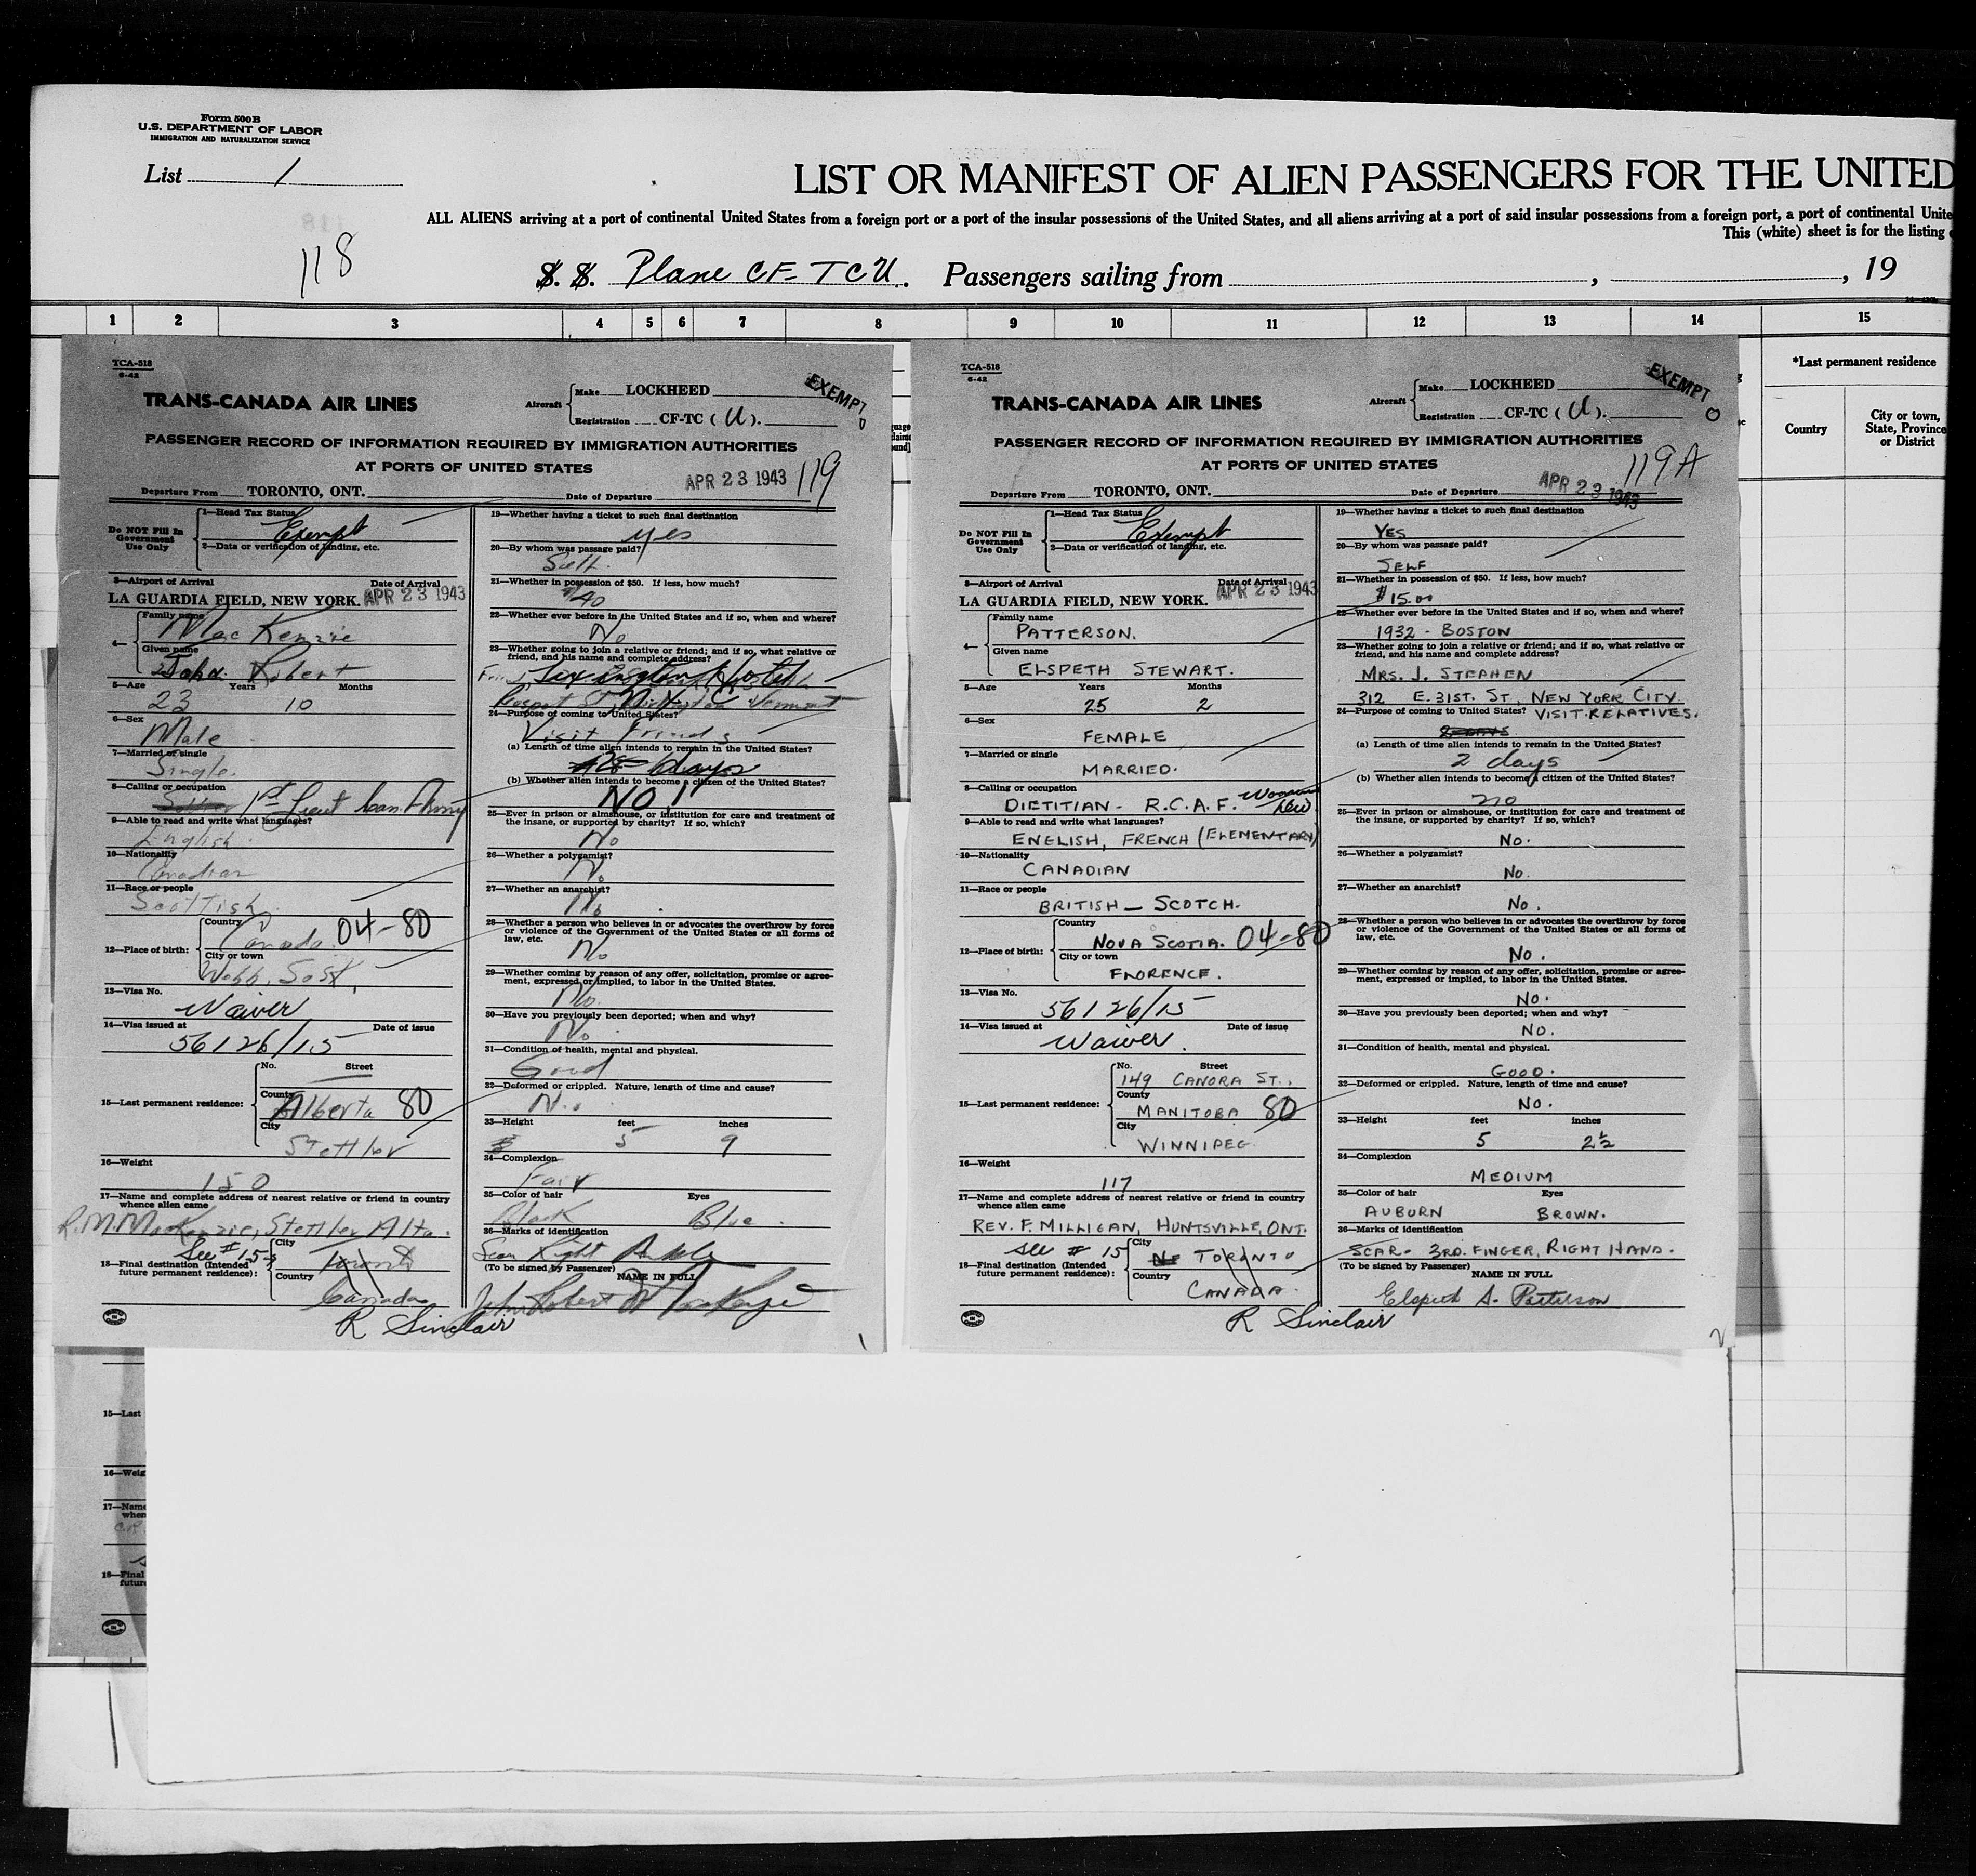 Form 500 B
U.S. DEPARTMENT OF LABOR
IMMIGRATION AND NATURALIZATION SERVICE
List 1
118
LIST OR MANIFEST OF ALIEN PASSENGERS FOR THE UNITED
ALL ALIENS arriving at a port of continental United States from a foreign port or a port of the insular possessions of the United States, and all aliens arriving at a port of said insular possessions from a foreign port, a port of continental Unite
This (white) sheet is for the listing
S. S. Plane CF-TCU. Passengers sailing from , , 19
1 2 3 4 5 6 7 8 9 10 11 12 13 14 15
*Last permanent residence
Country
City or town,
State, Province
or District
TCA-518
6-42
TRANS-CANADA AIR LINES
Aircraft Make LOCKHEED
Registration CF-TC (U).
EXEMPT
PASSENGER RECORD OF INFORMATION REQUIRED BY IMMIGRATION AUTHORITIES
AT PORTS OF UNITED STATES
119
Departure From TORONTO, ONT. Date of Departure APR 23 1943
Do NOT Fill In
Government
Use Only
1—Head Tax Status
Exempt
2—Data or verification of landing, etc.
3—Airport of Arrival Date of Arrival
LA GUARDIA FIELD, NEW YORK. APR 23 1943
4— Family name
MacKenzie
Given name
John Robert
5—Age Years Months
23 10
6—Sex
Male
7—Married or single
Single.
8—Calling or occupation
1st Lieut Can. Army
9—Able to read and write what languages?
English
10—Nationality
Canadian
11—Race or people
Scottish
12—Place of birth: Country
Canada. 04-80
City or town
Webb, Sask.
13—Visa No.
Waiver
14—Visa issued at Date of issue
56126/15
15—Last permanent residence: No. Street
County
Alberta 80
City
Stettler
16—Weight
150
17—Name and complete address of nearest relative or friend in country
whence alien came
R.M. MacKenzie, Stettler Alta.
See #15
18—Final destination (Intended
future permanent residence): City
Toronto
Country
Canada
R Sinclair
19—Whether having a ticket to such final destination
yes
20—By whom was passage paid?
Self.
21—Whether in possession of $50. If less, how much?
$40
22—Whether ever before in the United States and if so, when and where?
No
23—Whether going to join a relative or friend; and if so, what relative or
friend, and his name and complete address?
Lexington Hotel
N.Y.C. Vermont
24—Purpose of coming to United States?
Visit Friends
(a) Length of time alien intends to remain in the United States?
days
(b) Whether alien intends to become a citizen of the United States?
NO
25—Ever in prison or almshouse, or institution for care and treatment of
the insane, or supported by charity? If so, which?
No
26—Whether a polygamist?
No
27—Whether an anarchist?
No
28—Whether a person who believes in or advocates the overthrow by force
or violence of the Government of the United States or all forms of
law, etc.
No
29—Whether coming by reason of any offer, solicitation, promise or agree-
ment, expressed or implied, to labor in the United States.
No.
30—Have you previously been deported; when and why?
No.
31—Condition of health, mental and physical.
Good
32—Deformed or crippled. Nature, length of time and cause?
No.
33—Height feet inches
5 9
34—Complexion
Fair
35—Color of hair Eyes
Black Blue.
36—Marks of identification
Scar Right Ankle
(To be signed by Passenger) NAME IN FULL
John Robert MacKenzie
1
TCA-518
6-42
TRANS-CANADA AIR LINES
Aircraft Make LOCKHEED
Registration CF-TC (U).
EXEMPT
PASSENGER RECORD OF INFORMATION REQUIRED BY IMMIGRATION AUTHORITIES
AT PORTS OF UNITED STATES
119A
Departure From TORONTO, ONT. Date of Departure APR 23 1943
Do NOT Fill In
Government
Use Only
1—Head Tax Status
Exempt
2—Data or verification of landing, etc.
3—Airport of Arrival Date of Arrival
LA GUARDIA FIELD, NEW YORK. APR 23 1943
4— Family name
PATTERSON.
Given name
ELSPETH STEWART.
5—Age Years Months
25 2
6—Sex
FEMALE
7—Married or single
MARRIED.
8—Calling or occupation
DIETITIAN - R.C.A.F. Womens Div.
9—Able to read and write what languages?
ENGLISH, FRENCH (ELEMENTARY)
10—Nationality
CANADIAN
11—Race or people
BRITISH — SCOTCH.
12—Place of birth: Country
NOVA SCOTIA. 04-80
City or town
FLORENCE.
13—Visa No.
56126/15
14—Visa issued at Date of issue
Waiver.
15—Last permanent residence: No. Street
149 CANORA ST.,
County
MANITOBA 80
City
WINNIPEG.
16—Weight
117
17—Name and complete address of nearest relative or friend in country
whence alien came
REV. F. MILLIGAN, HUNTSVILLE, ONT.
see #15
18—Final destination (Intended
future permanent residence): City
TORONTO
Country
CANADA.
R Sinclair
19—Whether having a ticket to such final destination
YES
20—By whom was passage paid?
SELF
21—Whether in possession of $50. If less, how much?
$15.00
22—Whether ever before in the United States and if so, when and where?
1932 - BOSTON
23—Whether going to join a relative or friend; and if so, what relative or
friend, and his name and complete address?
MRS. J. STEPHEN
312 E. 31ST. ST., NEW YORK CITY.
24—Purpose of coming to United States? VISIT. RELATIVES.
(a) Length of time alien intends to remain in the United States?
2 days
(b) Whether alien intends to become a citizen of the United States?
no
25—Ever in prison or almshouse, or institution for care and treatment of
the insane, or supported by charity? If so, which?
No.
26—Whether a polygamist?
No.
27—Whether an anarchist?
No.
28—Whether a person who believes in or advocates the overthrow by force
or violence of the Government of the United States or all forms of
law, etc.
No.
29—Whether coming by reason of any offer, solicitation, promise or agree-
ment, expressed or implied, to labor in the United States.
No.
30—Have you previously been deported; when and why?
No.
31—Condition of health, mental and physical.
GOOD.
32—Deformed or crippled. Nature, length of time and cause?
No.
33—Height feet inches
5 2½
34—Complexion
MEDIUM
35—Color of hair Eyes
AUBURN BROWN.
36—Marks of identification
SCAR - 3RD. FINGER, RIGHT HAND.
(To be signed by Passenger)
NAME IN FULL
Elspeth S. Patterson
2
15—Last
16—Weig
17—Name
when
18—Final
future